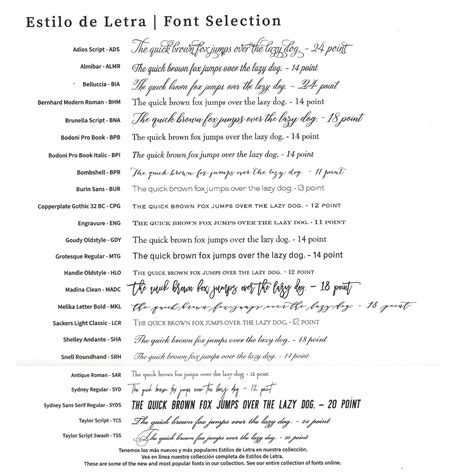 Estilo de Letra | Font Selection
Adios Script - ADS The quick brown fox jumps over the lazy dog. - 24 point
Almibar - ALMR The quick brown fox jumps over the lazy dog. - 14 point
Belluccia - BIA The quick brown fox jumps over the lazy dog. - 24 point
Bernhard Modern Roman - BHM The quick brown fox jumps over the lazy dog. - 14 point
Brunella Script - BNA The quick brown fox jumps over the lazy dog. - 18 point
Bodoni Pro Book - BPB The quick brown fox jumps over the lazy dog. - 14 point
Bodoni Pro Book Italic - BPI The quick brown fox jumps over the lazy dog. - 14 point
Bombshell - BPR The quick brown fox jumps over the lazy dog. - 11 point
Burin Sans - BUR The quick brown fox jumps over the lazy dog. - 13 point
Copperplate Gothic 32 BC - CPG The quick brown fox jumps over the lazy dog. - 12 point
Engravure - ENG The quick brown fox jumps over the lazy dog. - 11 point
Goudy Oldstyle - GDY The quick brown fox jumps over the lazy dog. - 14 point
Grotesque Regular - MTG The quick brown fox jumps over the lazy dog. - 14 point
Handle Oldstyle - HLO The quick brown fox jumps over the lazy dog. - 12 point
Madina Clean - MADC the quick brown fox jumps over the lazy dog. - 18 point
Melika Letter Bold - MKL the quick brown fox jumps over the lazy dog. - 18 point
Sackers Light Classic - LCR THE QUICK BROWN FOX JUMPS OVER THE LAZY DOG. - 12 point
Shelley Andante - SHA The quick brown fox jumps over the lazy dog. - 14 point
Snell Roundhand - SRH The quick brown fox jumps over the lazy dog. - 14 point
Antique Roman - SAR The quick brown fox jumps over the lazy dog. - 12 point
Sydney Regular - SYD The quick brown fox jumps over the lazy dog. - 12 point
Sydney Sans Serif Regular - SYDS THE QUICK BROWN FOX JUMPS OVER THE LAZY DOG. - 20 POINT
Taylor Script - TCS The quick brown fox jumps over the lazy dog. - 14 point
Taylor Script Swash - TSS The quick brown fox jumps over the lazy dog. - 14 point
Tenemos los más nuevos y más populares Estilos de Letra en nuestra collección.
Vea en línea nuestra collección completa de Estilos de Letra.
These are some of the new and most popular fonts in our collection. See our entire collection of fonts online.